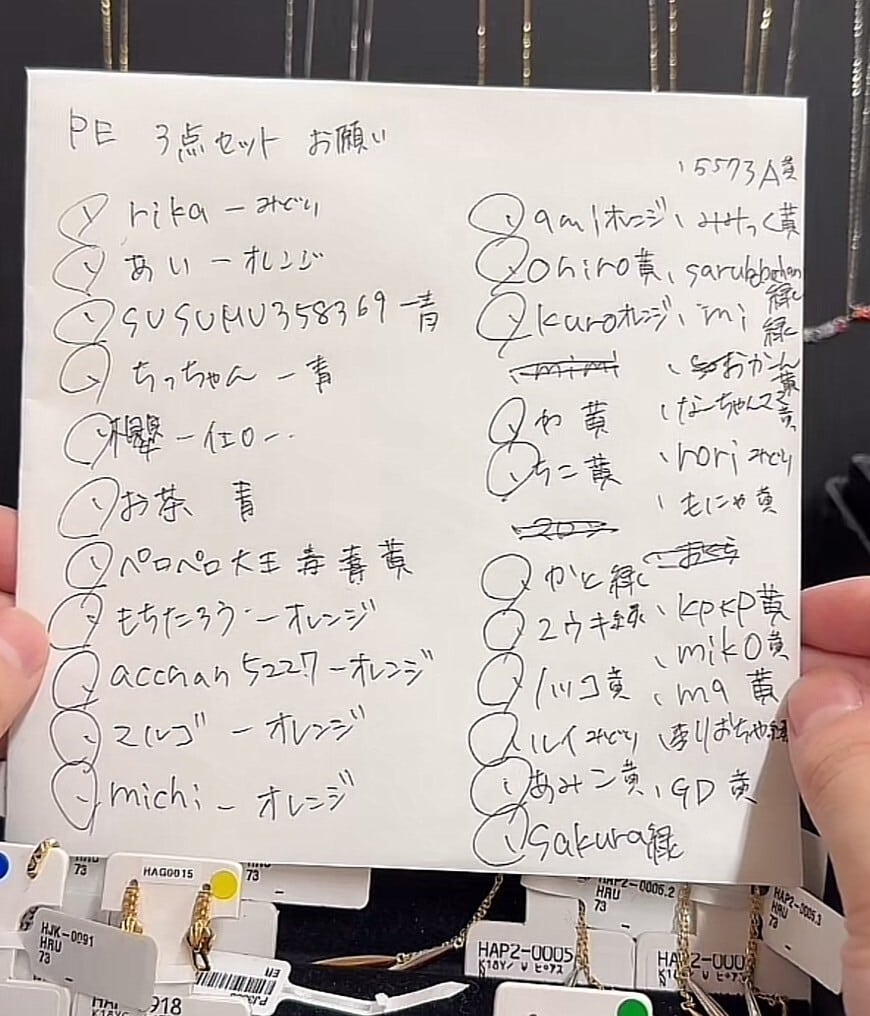 PE 3点セット お願い
、rika ー みどり
、あい ー オレンジ
、SUSUMU358369 ー 青
、ちっちゃん ー 青
、櫻 ー イエロー
、お茶 青
、ペロペロ大王 青 黄
、もちたろう ー オレンジ
、acchan5227 ー オレンジ
、マルゴ ー オレンジ
、michi ー オレンジ
、5573A 黄
、amiオレンジ、みみっく黄
、ohiro黄、
緑
、kuroオレンジ、mi 緑
mimi 、おかーん 黄
、や 黄 、なーちゃんママ 黄
、ちこ 黄 、noriみどり
、もにゃ 黄
、かと 緑 おくら
、ユウキ緑、kpkp黄
、miko黄
、ノリコ黄 、ma 黄
、ルイみどり
、あみこ黄、GD 黄
、sakura緑
HAG0015
HRU
73
HJK-0091
HRU
73
HAP2-0005.2
HRU
73
HAP2-0005.3
HRU
73
HAP2-0005
K18Y/ W ピアス
HAP2-000
K18Y/ W ピアス
918